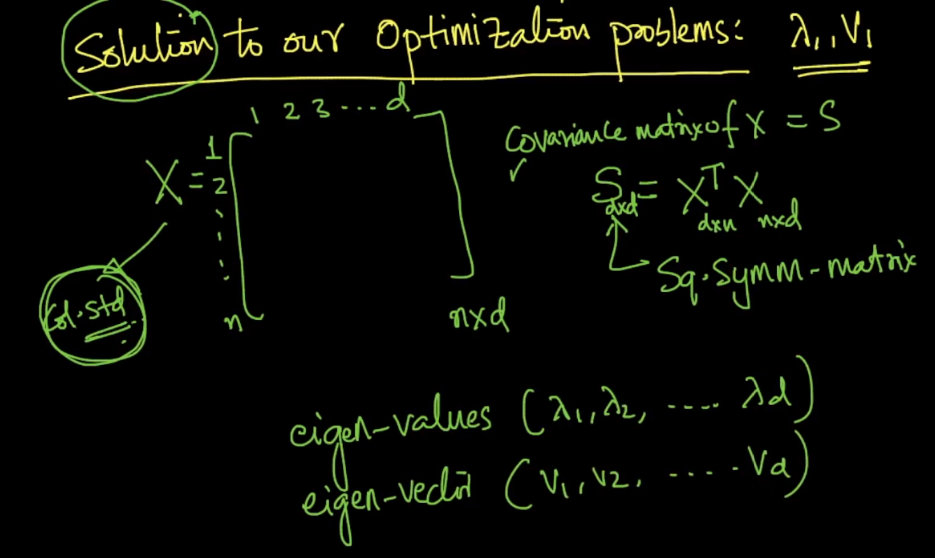 Solution to our Optimization problems: λ₁, V₁
1 2 3 ... d
X = 1
2
n
n×d
Col. std
Covariance matrix of X = S
S d×d = Xᵀ X
d×n n×d
Sq. Symm-matrix
eigen-values (λ₁, λ₂, .... λd)
eigen-vector (V₁, V₂, ..... Vd)